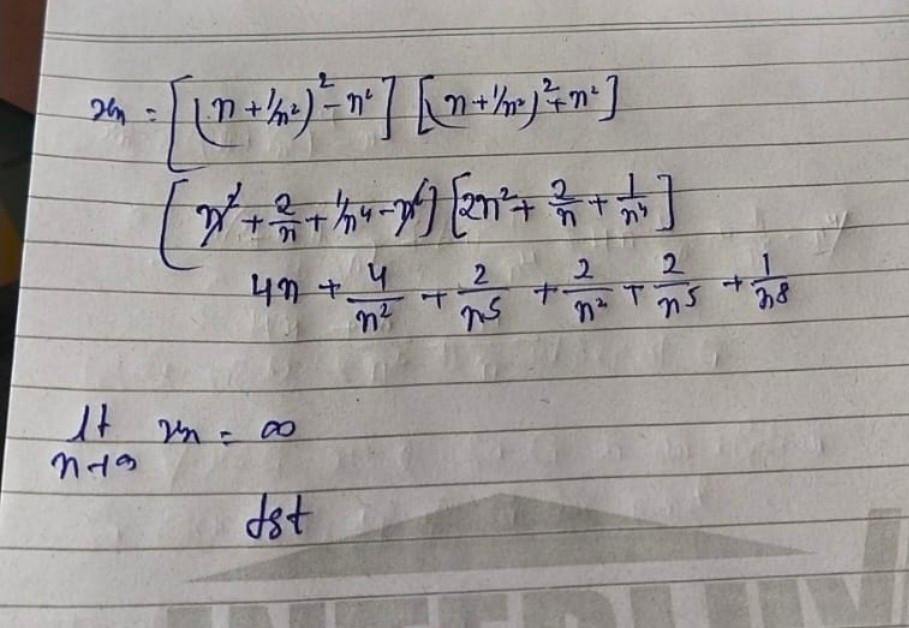 xn = [(n + 1/n²)² - n²] [(n + 1/n²)² + n²]
[n² + 2/n + 1/n⁴ - n²] [2n² + 2/n + 1/n⁴]
4n + 4/n² + 2/n⁵ + 2/n² + 2/n⁵ + 1/n8
lt xn = ∞
n→∞